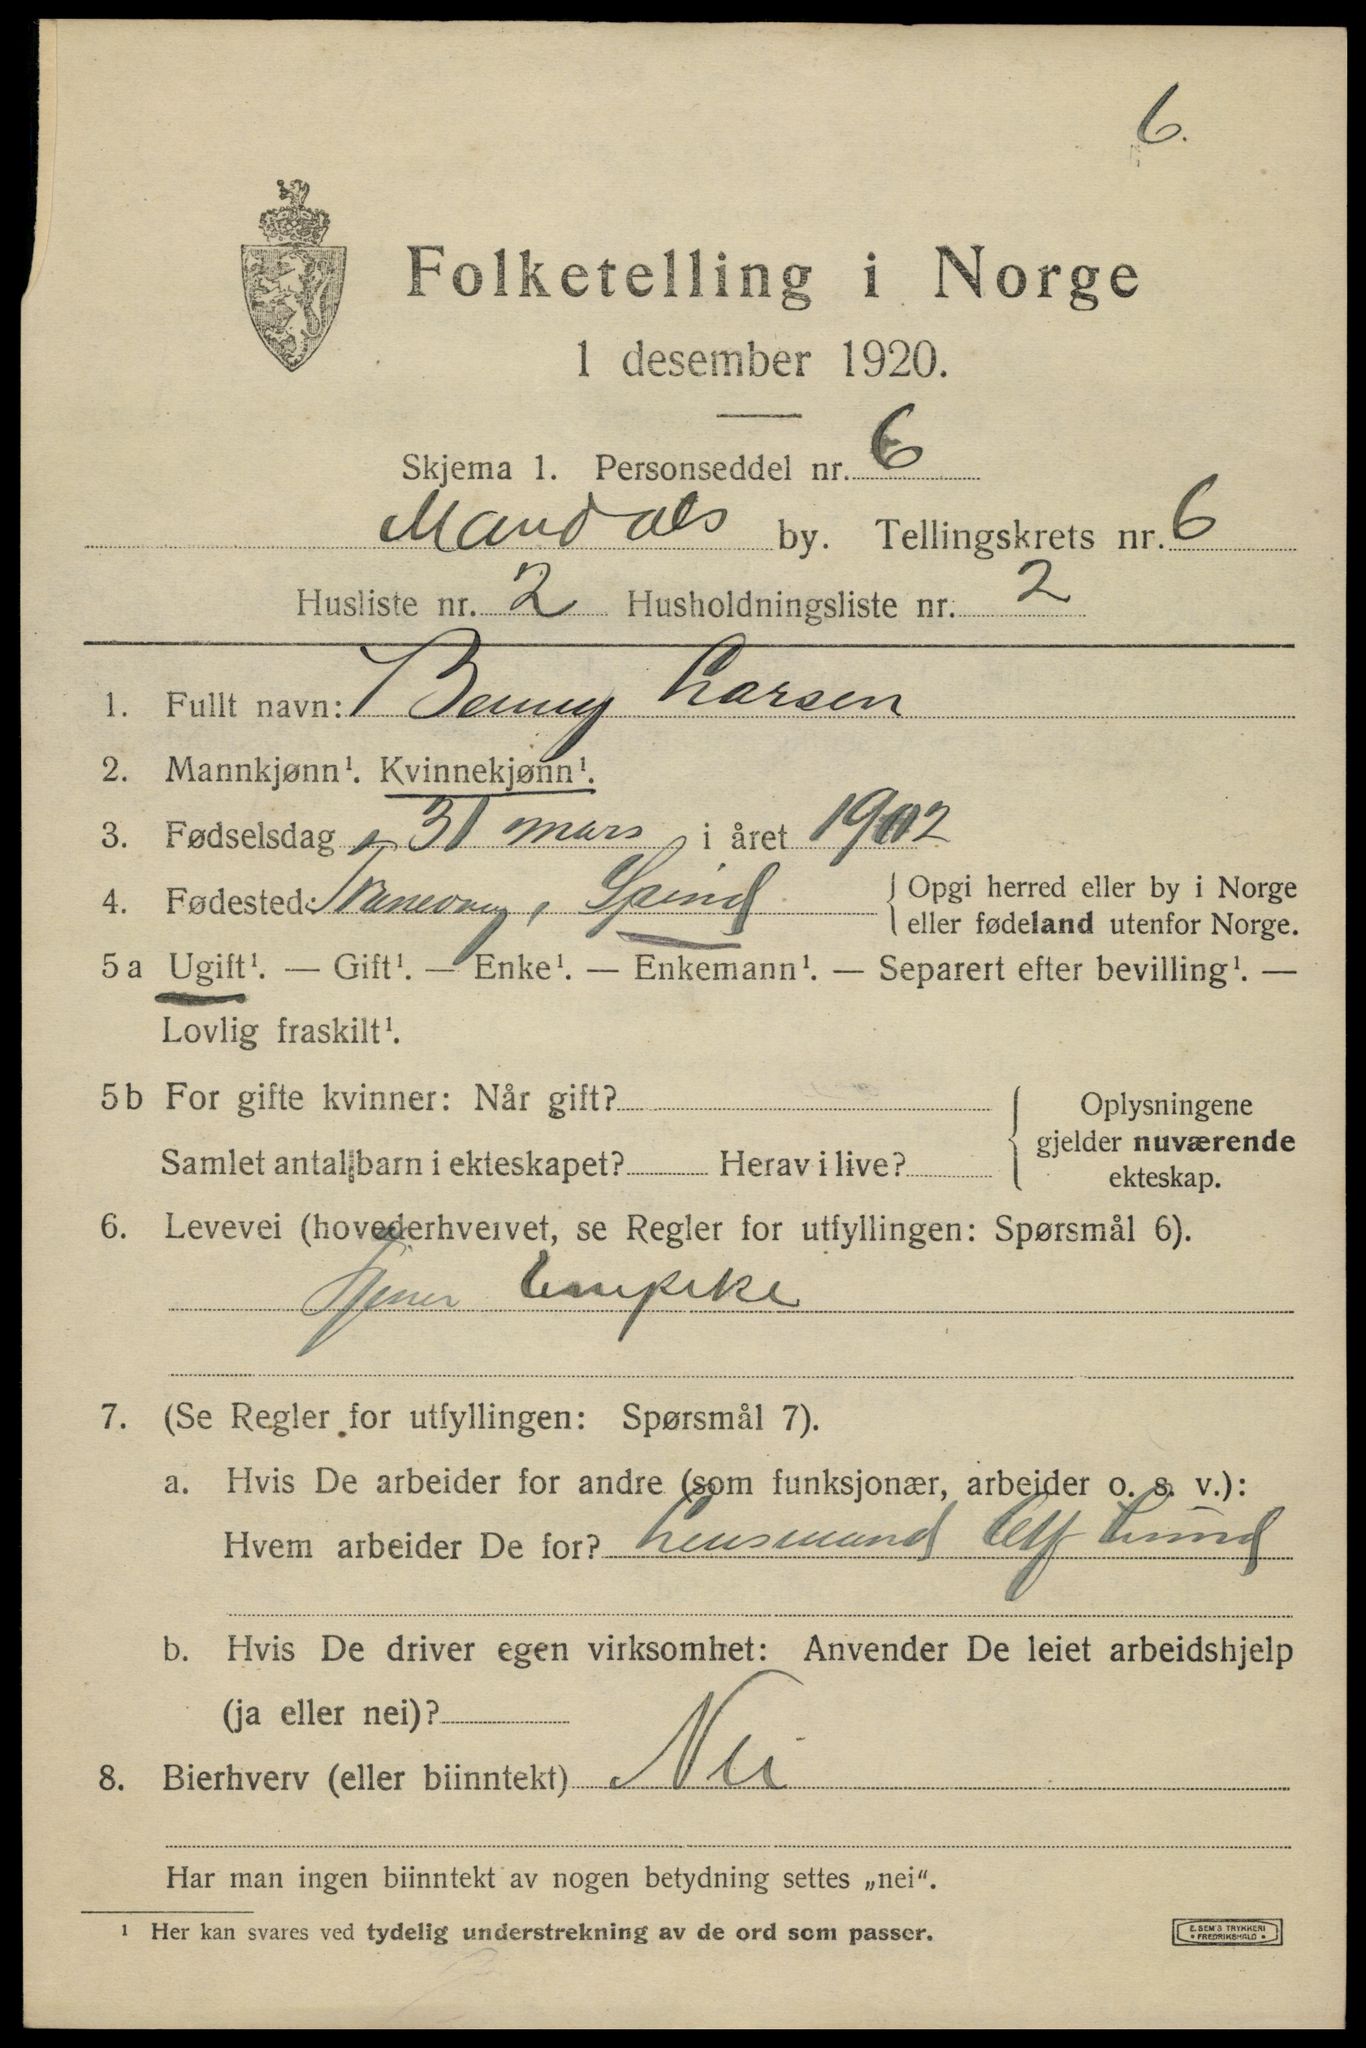 6.
Folketelling i Norge
1 desember 1920.
Skjema 1. Personseddel nr. 6
Mandals by. Tellingskrets nr. 6
Husliste nr. 2 Husholdningsliste nr. 2
1. Fullt navn: Benny Larsen
2. Mannkjønn¹. Kvinnekjønn¹.
3. Fødselsdag 31 mars i året 1902
4. Fødested: Spind { Opgi herred eller by i Norge
eller fødeland utenfor Norge.
5 a Ugift¹. — Gift¹. — Enke¹. — Enkemann¹. — Separert efter bevilling¹. —
Lovlig fraskilt¹.
5 b For gifte kvinner: Når gift? { Oplysningene
gjelder nuværende
ekteskap.
Samlet antal barn i ekteskapet? Herav i live?
6. Levevei (hovederhvervet, se Regler for utfyllingen: Spørsmål 6).
Tjener
7. (Se Regler for utfyllingen: Spørsmål 7).
a. Hvis De arbeider for andre (som funksjonær, arbeider o. s. v.):
Hvem arbeider De for? Lensmand Alf Lund
b. Hvis De driver egen virksomhet: Anvender De leiet arbeidshjelp
(ja eller nei)?
8. Bierhverv (eller biinntekt) Nei
Har man ingen biinntekt av nogen betydning settes „nei“.
¹ Her kan svares ved tydelig understrekning av de ord som passer.
E. SEM'S TRYKKERI
FREDRIKSHALD